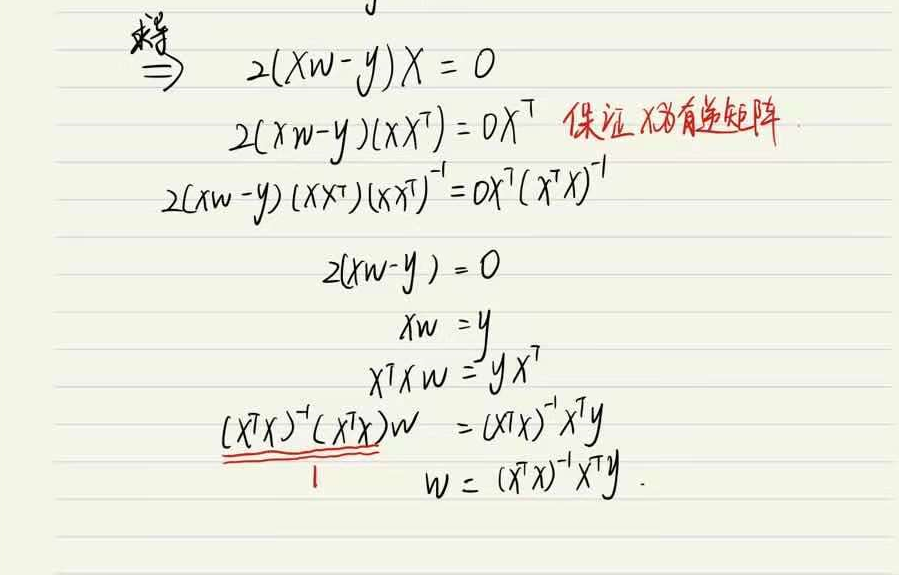 求导
⇒ 2(Xw-y)X = 0
2(Xw-y)(XXᵀ) = 0Xᵀ 保证X为有逆矩阵.
2(Xw-y)(XXᵀ)(XXᵀ)⁻¹ = 0Xᵀ(XᵀX)⁻¹
2(Xw-y) = 0
Xw = y
XᵀXw = yXᵀ
(XᵀX)⁻¹(XᵀX)w = (XᵀX)⁻¹Xᵀy
1
w = (XᵀX)⁻¹Xᵀy.